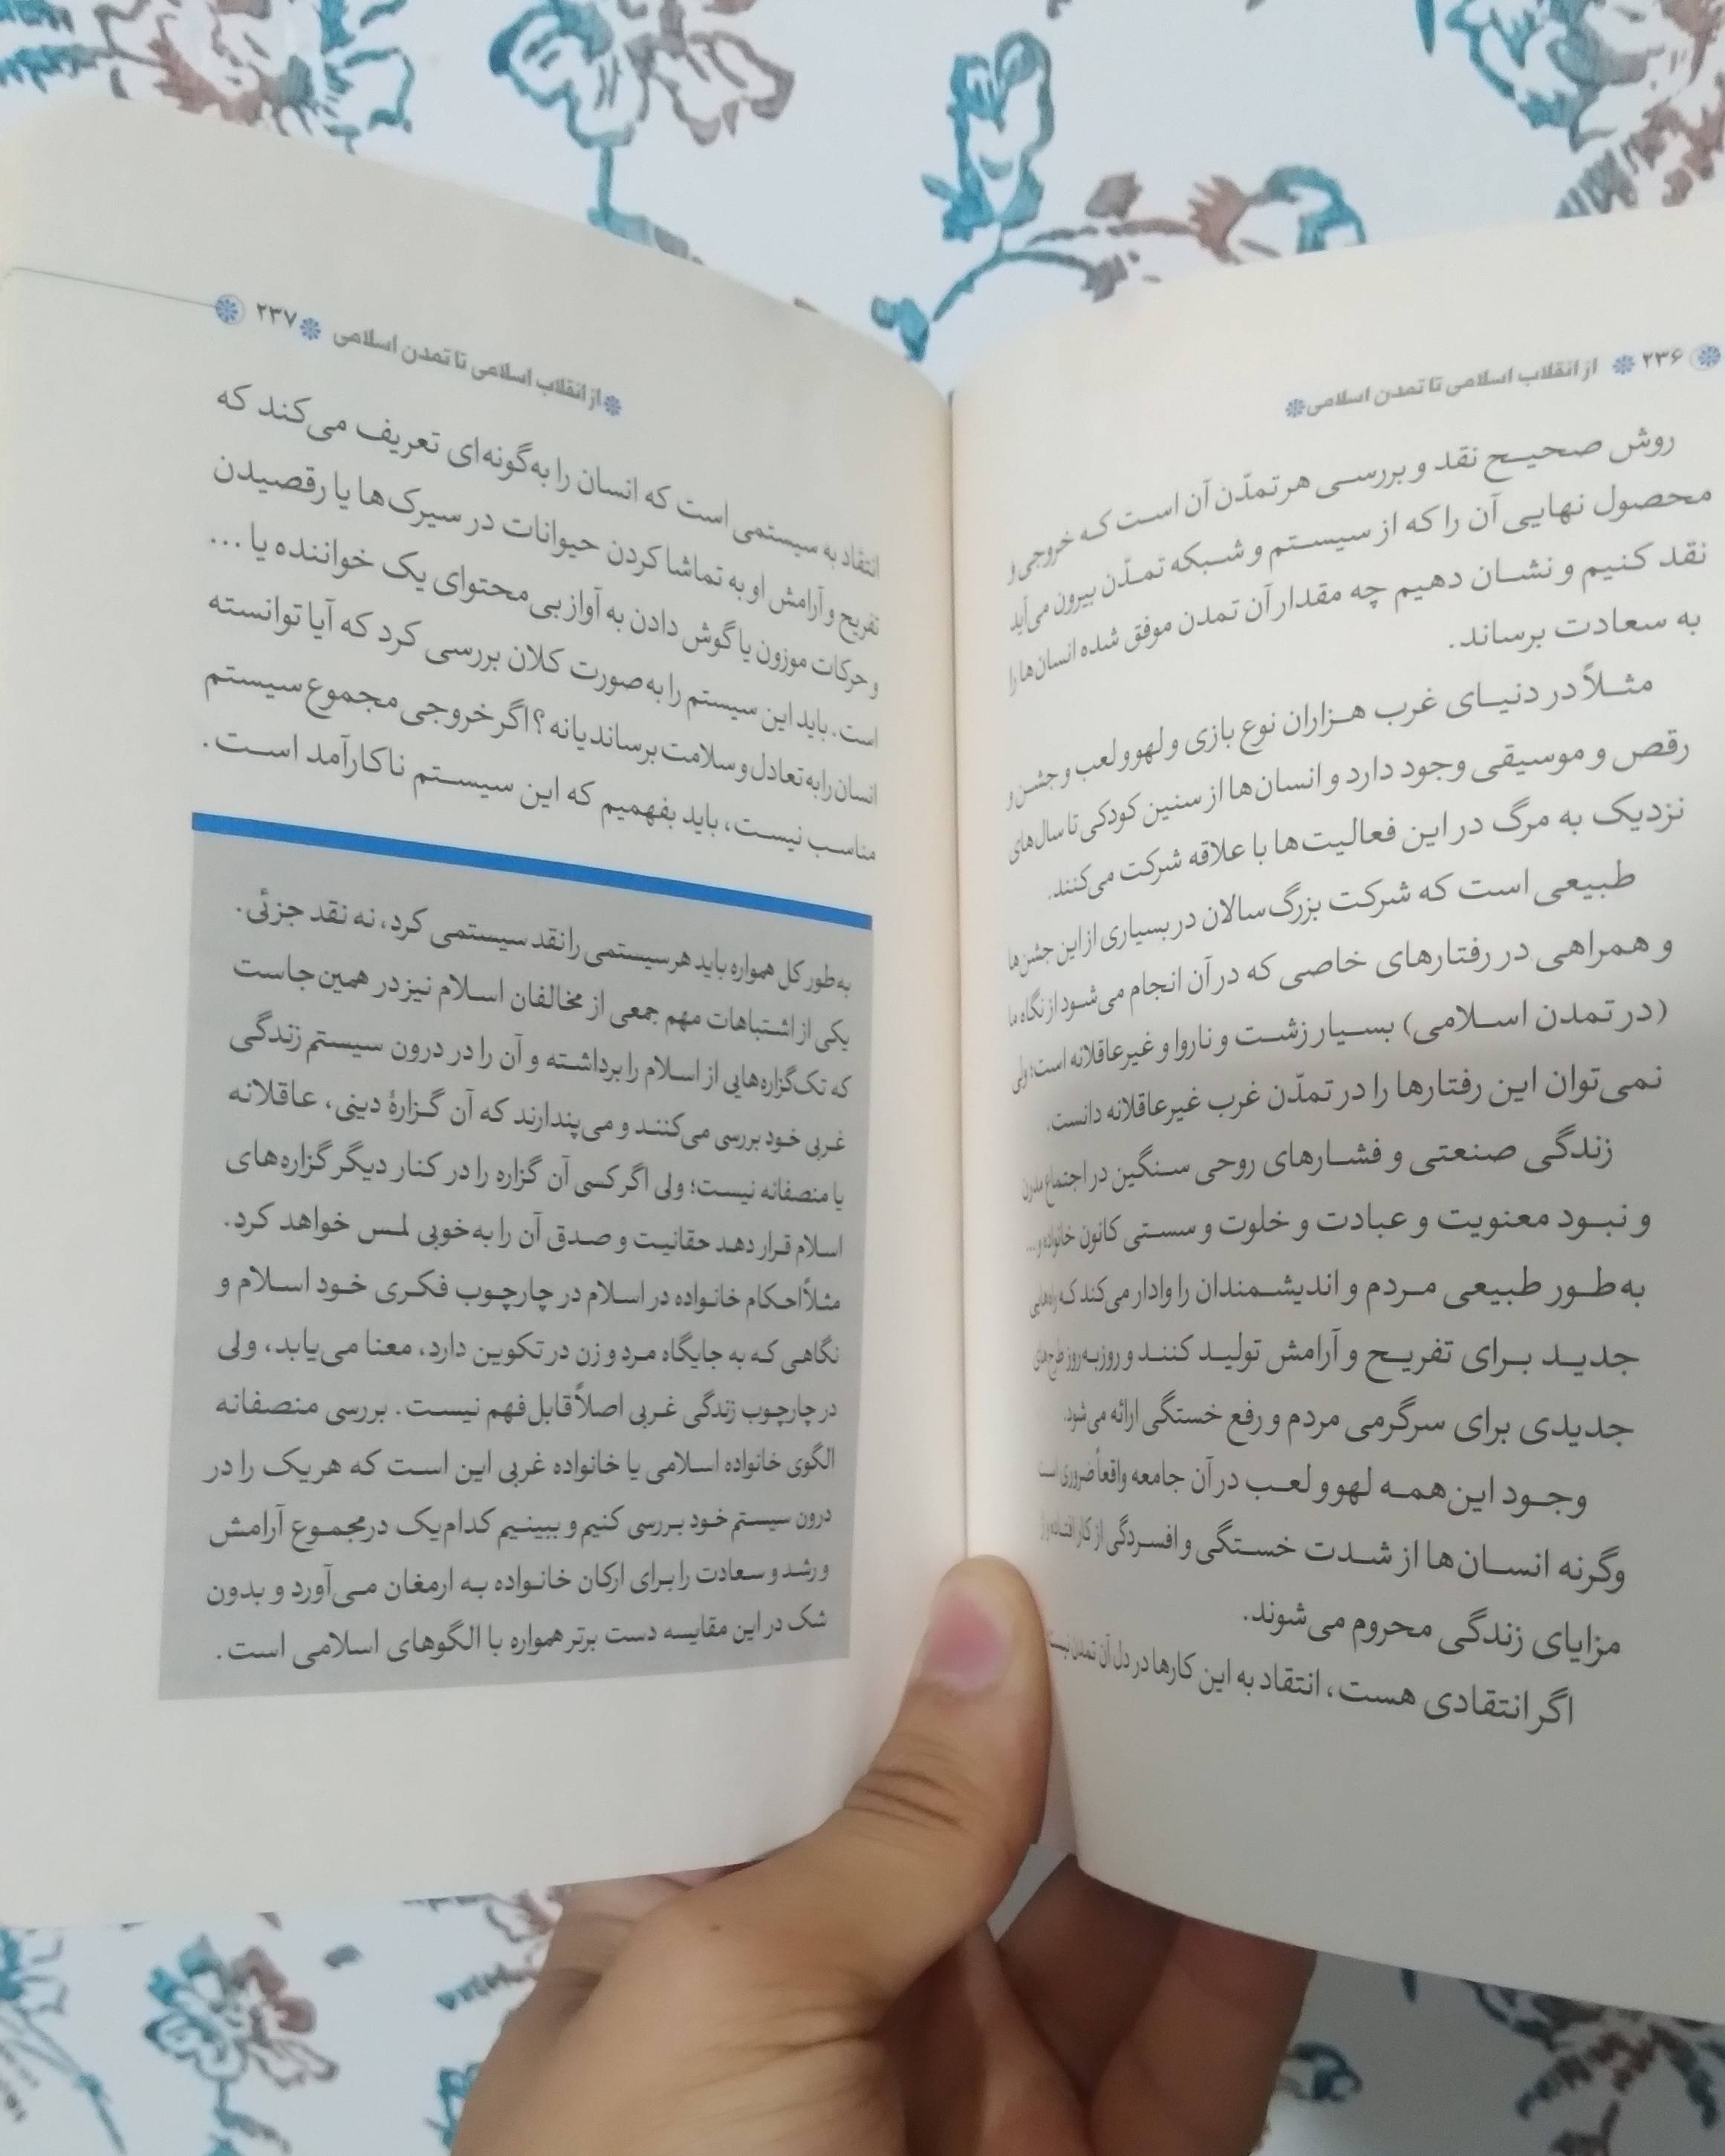 ۲۳۶ از انقلاب اسلامی تا تمدن اسلامی
روش صحیح نقد و بررسی هر تمدّن آن است که خروجی و
محصول نهایی آن را که از سیستم و شبکه تمدّن بیرون می‌آید
نقد کنیم و نشان دهیم چه مقدار آن تمدن موفق شده انسان‌ها را
به سعادت برساند.
مثلاً در دنیای غرب هزاران نوع بازی و لهو و لعب و جشن و
رقص و موسیقی وجود دارد و انسان‌ها از سنین کودکی تا سال‌های
نزدیک به مرگ در این فعالیت‌ها با علاقه شرکت می‌کنند.
طبیعی است که شرکت بزرگ‌سالان در بسیاری از این جشن‌ها
و همراهی در رفتارهای خاصی که در آن انجام می‌شود از نگاه ما
(در تمدن اسلامی) بسیار زشت و ناروا و غیرعاقلانه است؛ ولی
نمی‌توان این رفتارها را در تمدّن غرب غیرعاقلانه دانست.
زندگی صنعتی و فشارهای روحی سنگین در اجتماع مدرن
و نبود معنویت و عبادت و خلوت و سستی کانون خانواده و...
به‌طور طبیعی مردم و اندیشمندان را وادار می‌کند که راه‌هایی
جدید برای تفریح و آرامش تولید کنند و روزبه‌روز طرح‌های
جدیدی برای سرگرمی مردم و رفع خستگی ارائه می‌شود.
وجود این‌همه لهو و لعب در آن جامعه واقعاً ضروری است
وگرنه انسان‌ها از شدت خستگی و افسردگی از کار افتاده و از
مزایای زندگی محروم می‌شوند.
اگر انتقادی هست، انتقاد به این کارها در دل آن تمدن نیست
از انقلاب اسلامی تا تمدن اسلامی ۲۳۷
انتقاد به سیستمی است که انسان را به‌گونه‌ای تعریف می‌کند که
تفریح و آرامش او به تماشا کردن حیوانات در سیرک‌ها یا رقصیدن
و حرکات موزون یا گوش دادن به آواز بی‌محتوای یک خواننده یا ...
است. باید این سیستم را به‌صورت کلان بررسی کرد که آیا توانسته
انسان را به تعادل و سلامت برساند یا نه؟ اگر خروجی مجموع سیستم
مناسب نیست، باید بفهمیم که این سیستم ناکارآمد است.
به‌طور کل همواره باید هر سیستمی را نقد سیستمی کرد، نه نقد جزئی.
یکی از اشتباهات مهم جمعی از مخالفان اسلام نیز در همین‌جاست
که تک‌گزاره‌هایی از اسلام را برداشته و آن را در درون سیستم زندگی
غربی خود بررسی می‌کنند و می‌پندارند که آن گزارهٔ دینی، عاقلانه
یا منصفانه نیست؛ ولی اگر کسی آن گزاره را در کنار دیگر گزاره‌های
اسلام قرار دهد حقانیت و صدق آن را به‌خوبی لمس خواهد کرد.
مثلاً احکام خانواده در اسلام در چارچوب فکری خود اسلام و
نگاهی که به جایگاه مرد و زن در تکوین دارد، معنا می‌یابد، ولی
در چارچوب زندگی غربی اصلاً قابل‌فهم نیست. بررسی منصفانه
الگوی خانواده اسلامی یا خانواده غربی این است که هر یک را در
درون سیستم خود بررسی کنیم و ببینیم کدام‌یک در مجموع آرامش
و رشد و سعادت را برای ارکان خانواده به ارمغان می‌آورد و بدون
شک در این مقایسه دست برتر همواره با الگوهای اسلامی است.